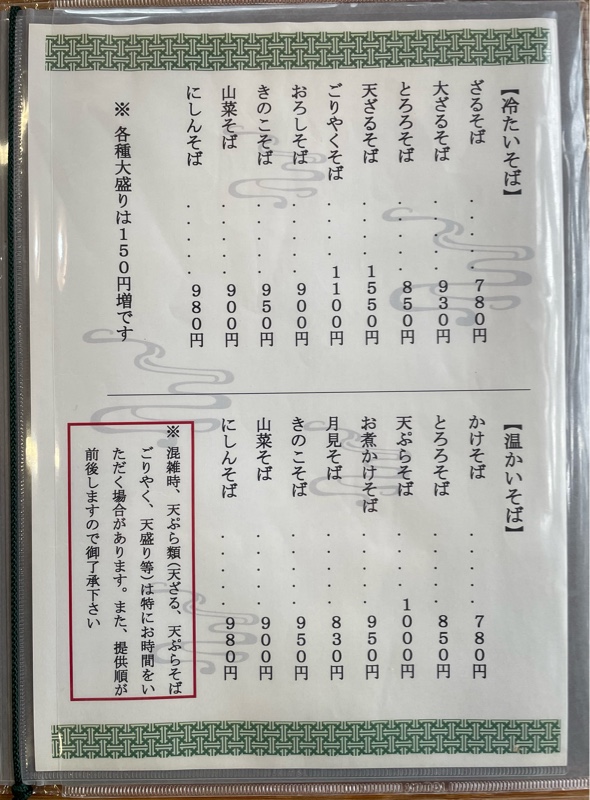 【冷たいそば】
ざるそば ・・・・・780円
大ざるそば ・・・・・930円
とろろそば ・・・・・850円
天ざるそば ・・・・・1550円
ごりやくそば ・・・・1100円
おろしそば ・・・・・900円
きのこそば ・・・・・950円
山菜そば ・・・・・900円
にしんそば ・・・・・980円
※ 各種大盛りは150円増です
【温かいそば】
かけそば ・・・・・780円
とろろそば ・・・・・850円
天ぷらそば ・・・・1000円
お煮かけそば ・・・・・950円
月見そば ・・・・・830円
きのこそば ・・・・・950円
山菜そば ・・・・・900円
にしんそば ・・・・・980円
※ 混雑時、天ぷら類(天ざる、天ぷらそば
ごりやく、天盛り等)は特にお時間をい
ただく場合があります。また、提供順が
前後しますので御了承下さい